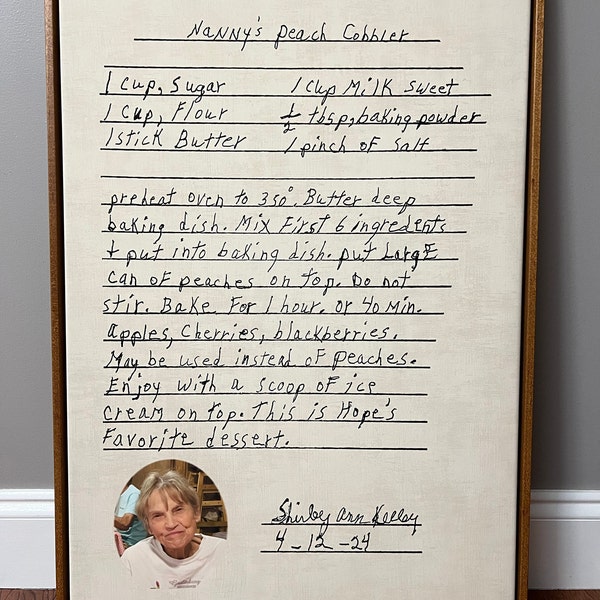 Nanny's Peach Cobbler
1 cup, Sugar 1 cup Milk Sweet
1 cup, Flour 1/2 tbsp, baking powder
1 stick Butter 1 pinch of Salt
preheat oven to 350°. Butter deep
baking dish. Mix First 6 ingredents
+ put into baking dish. put LargE
can of peaches on top. Do not
stir. Bake For 1 hour. or 40 Min.
apples, Cherries, blackberries.
May be used instead of peaches.
Enjoy with a scoop of ice
cream on top. This is Hope's
Favorite dessert.
Shirley Ann Kelley
4-12-24